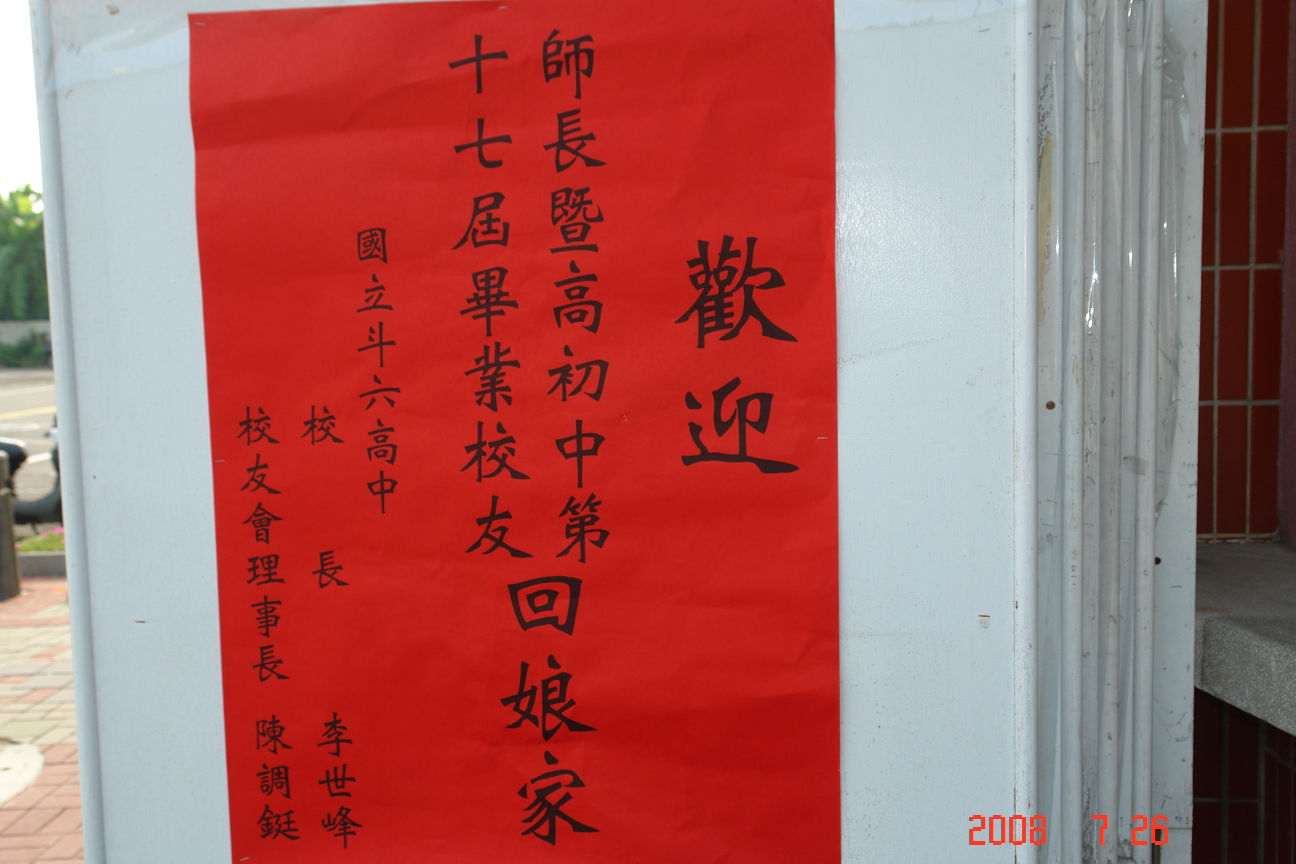 歡迎
師長暨高初中第
十七屆畢業校友
回娘家
國立斗六高中
校長 李世峰
校友會理事長 陳調鋌
2008 7 26